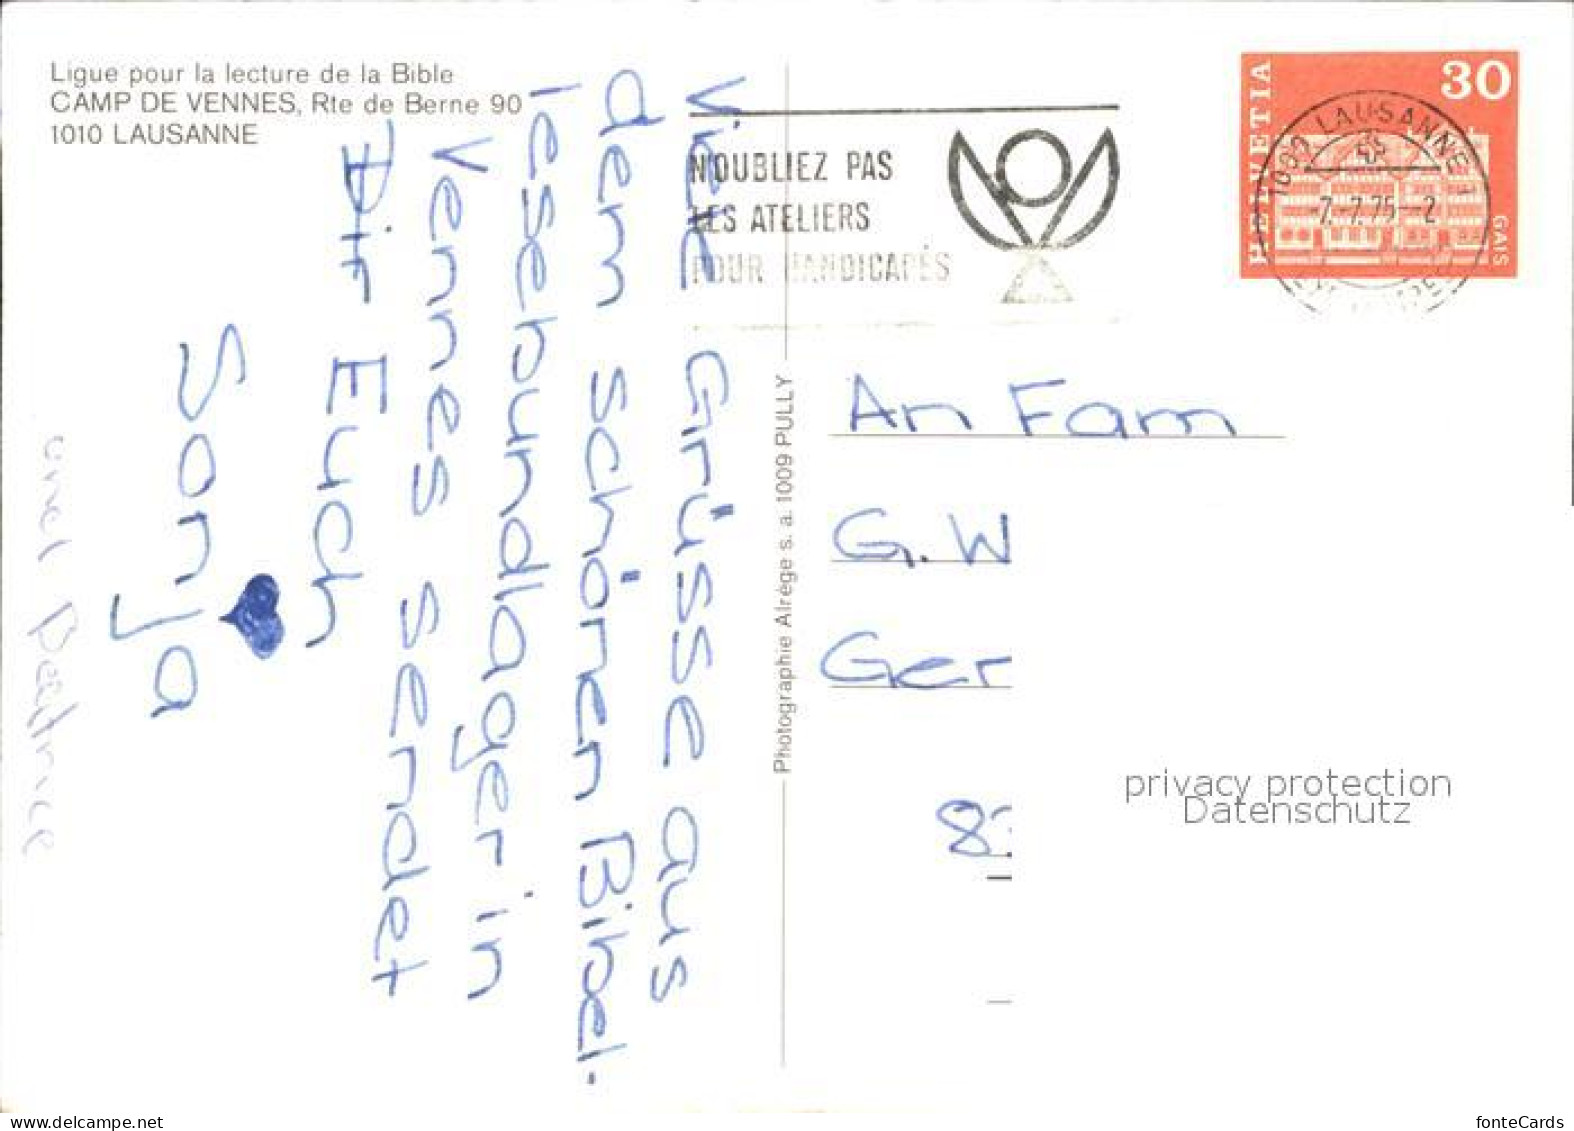 Ligue pour la lecture de la Bible
CAMP DE VENNES, Rte de Berne 90
1010 LAUSANNE
Viele Grüsse aus
dem schönen Bibel-
lesebundlager in
Vennes sendet
Dir Euch
Sonja
und Beatrice
Photographie Alrège s. a. 1009 PULLY
N'OUBLIEZ PAS
LES ATELIERS
POUR HANDICAPÉS
HELVETIA
30
GAIS
1000 LAUSANNE 1
-7.-7.75--2
An Fam
G. W
Ger
8
privacy protection
Datenschutz
www.delcampe.net
fonteCards